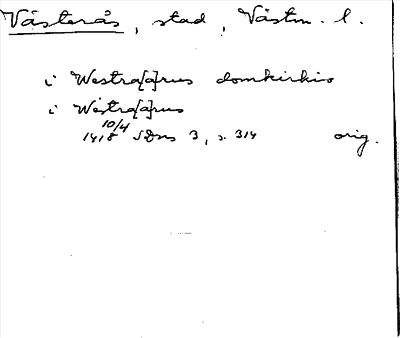 Västerås, stad, Västm. l.
i Westra[a]rus domkirkio
i Westra[a]rus
1418 10/4 SDns 3, s. 314 orig.